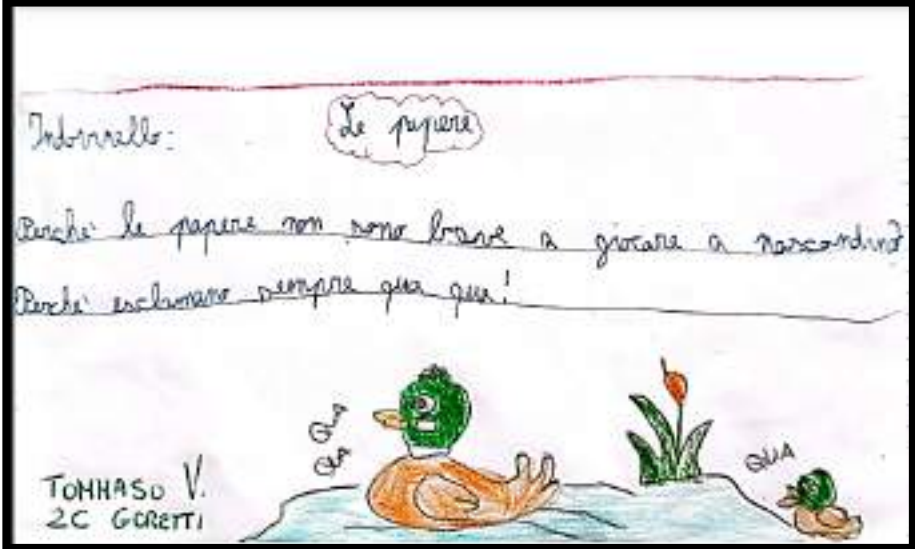 Indovinello: Le papere
Perché le papere non sono brave a giocare a nascondino?
Perché esclamano sempre qua qua!
Qua
Qua
QUA
TOMMASO V.
2C GORETTI